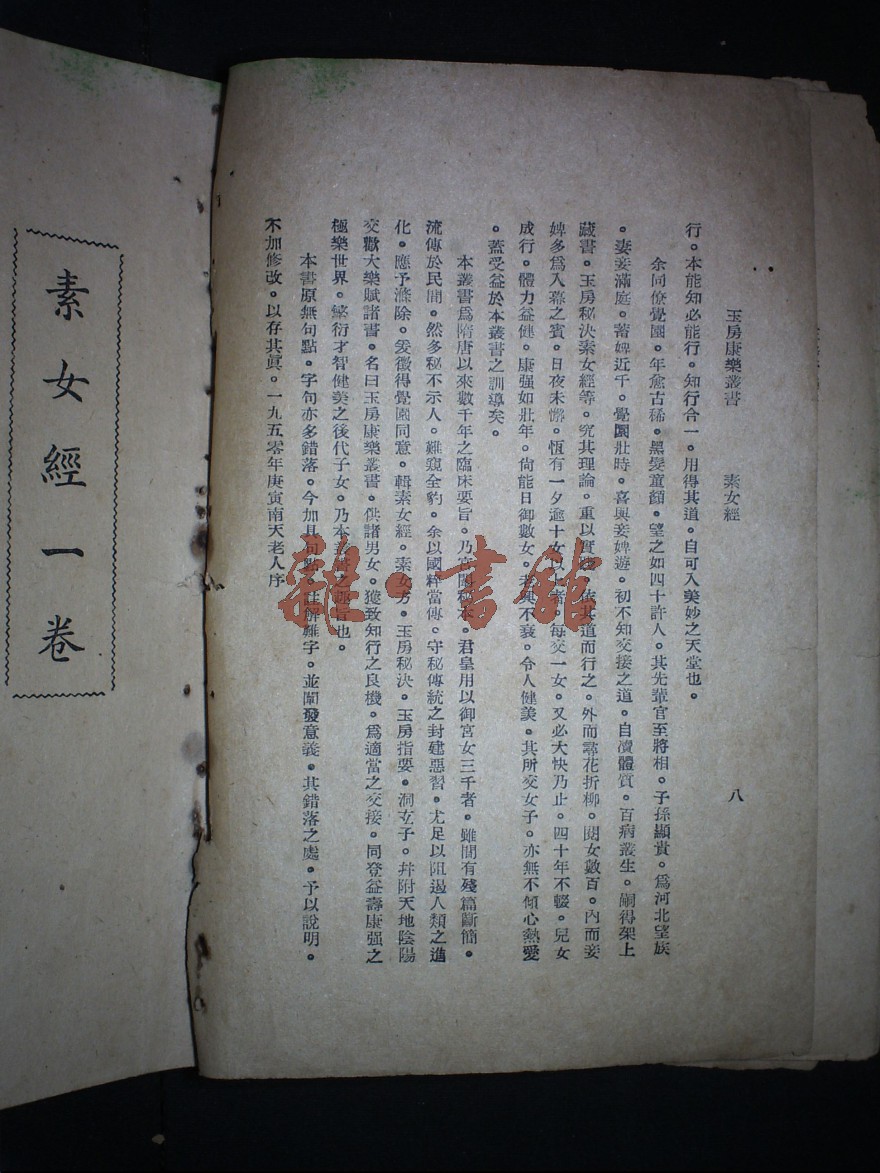 玉房康樂叢書　素女經　八
行。本能知必能行。知行合一。用得其道。自可入美妙之天堂也。
余同僚覺園。年愈古稀。黑髮童顏。望之如四十許人。其先輩官至將相。子孫顯貴。爲河北望族
。妻妾滿庭。蓄婢近千。覺園壯時。喜與妾婢遊。初不知交接之道。自凟體質。百病叢生。嗣得架上
藏書。玉房秘決素女經等。究其理論。重以實踐。依其道而行之。外而尋花折柳。閱女數百。內而妾
婢多爲入幕之賓。日夜未懈。恆有一夕逾十女以上者。每交一女。又必大快乃止。四十年不輟。兒女
成行。體力益健。康强如壯年。尙能日御數女。老興不衰。令人健美。其所交女子。亦無不傾心熱愛
。蓋受益於本叢書之訓導矣。
本叢書爲隋唐以來數千年之臨床要旨。乃宮闈秘本。君皇用以御宮女三千者。雖間有殘篇斷簡。
流傳於民間。然多秘不示人。難窺全豹。余以國粹當傳。守秘傳統之封建惡習。尤足以阻遏人類之進
化。應予滌除。爰徵得覺園同意。輯素女經。素女方。玉房秘決。玉房指要。洞玄子。幷附天地陰陽
交歡大樂賦諸書。名曰玉房康樂叢書。供諸男女。獲致知行之良機。爲適當之交接。同登益壽康强之
極樂世界。繁衍才智健美之後代子女。乃本叢書之趣旨也。
本書原無句點。字句亦多錯落。今加具句點。註解難字。並闡發意義。其錯落之處。予以說明。
不加修改。以存其眞。一九五零年庚寅南天老人序
素女經一卷
雜·書館